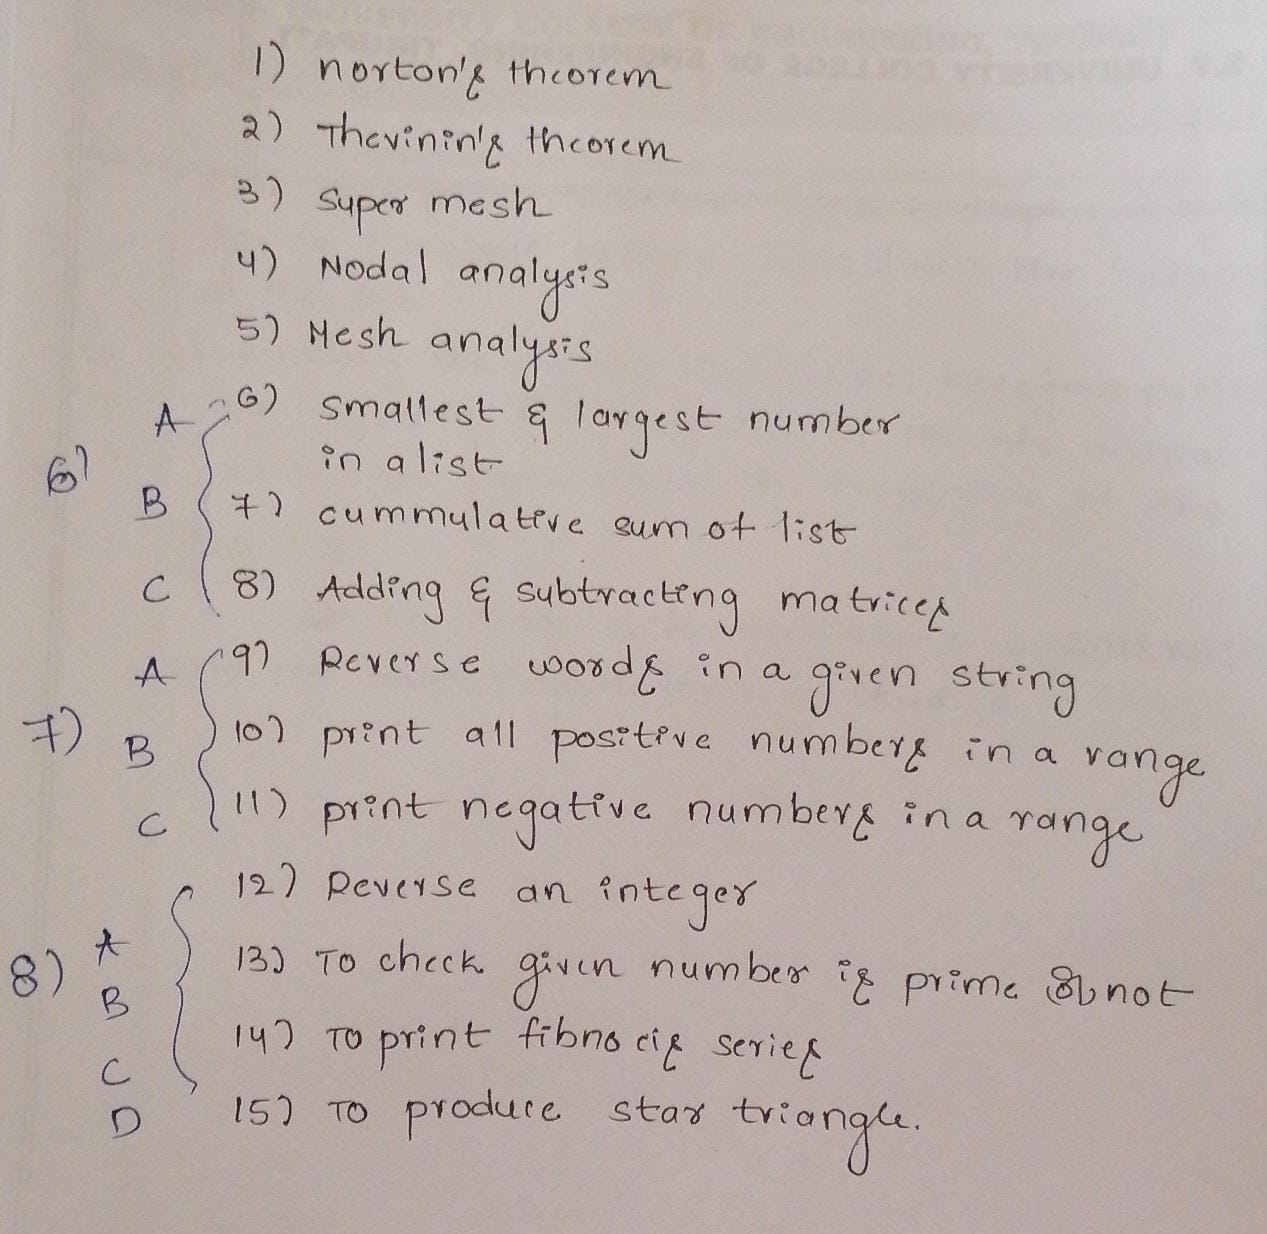 1) norton's theorem
2) Thevinin's theorem
3) Super mesh
4) Nodal analysis
5) Mesh analysis
A 6) smallest & largest number
in a list
6)
B 7) cummulative sum of list
C 8) Adding & subtracting matrices
A 9) Reverse words in a given string
7)
B 10) print all positive numbers in a range
C 11) print negative numbers in a range
12) Reverse an integer
8) A 13) To check given number is prime or not
B
14) To print fibnocis series
C
D 15) To produce star triangle.